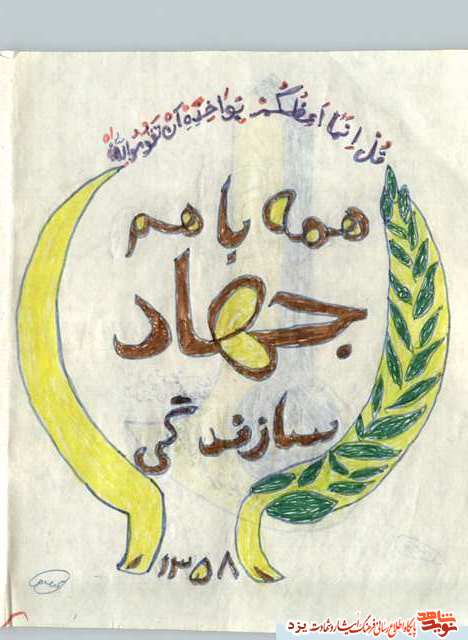 قُل اِنَّما اَعِظُکُم بِواحِدَةٍ اَن تَقُومُوالِلّٰهِ
همه با هم
جهاد
سازندگی
۱۳۵۸
نوید شاهد
پایگاه اطلاع رسانی فرهنگ ایثار و شهادت یزد